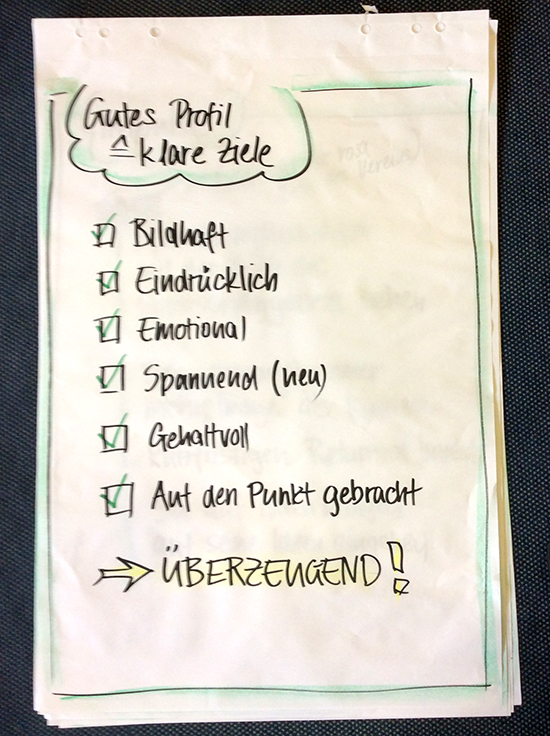 Gutes Profil
≙ klare Ziele
Bildhaft
Eindrücklich
Emotional
Spannend (neu)
Gehaltvoll
Auf den Punkt gebracht
ÜBERZEUGEND!